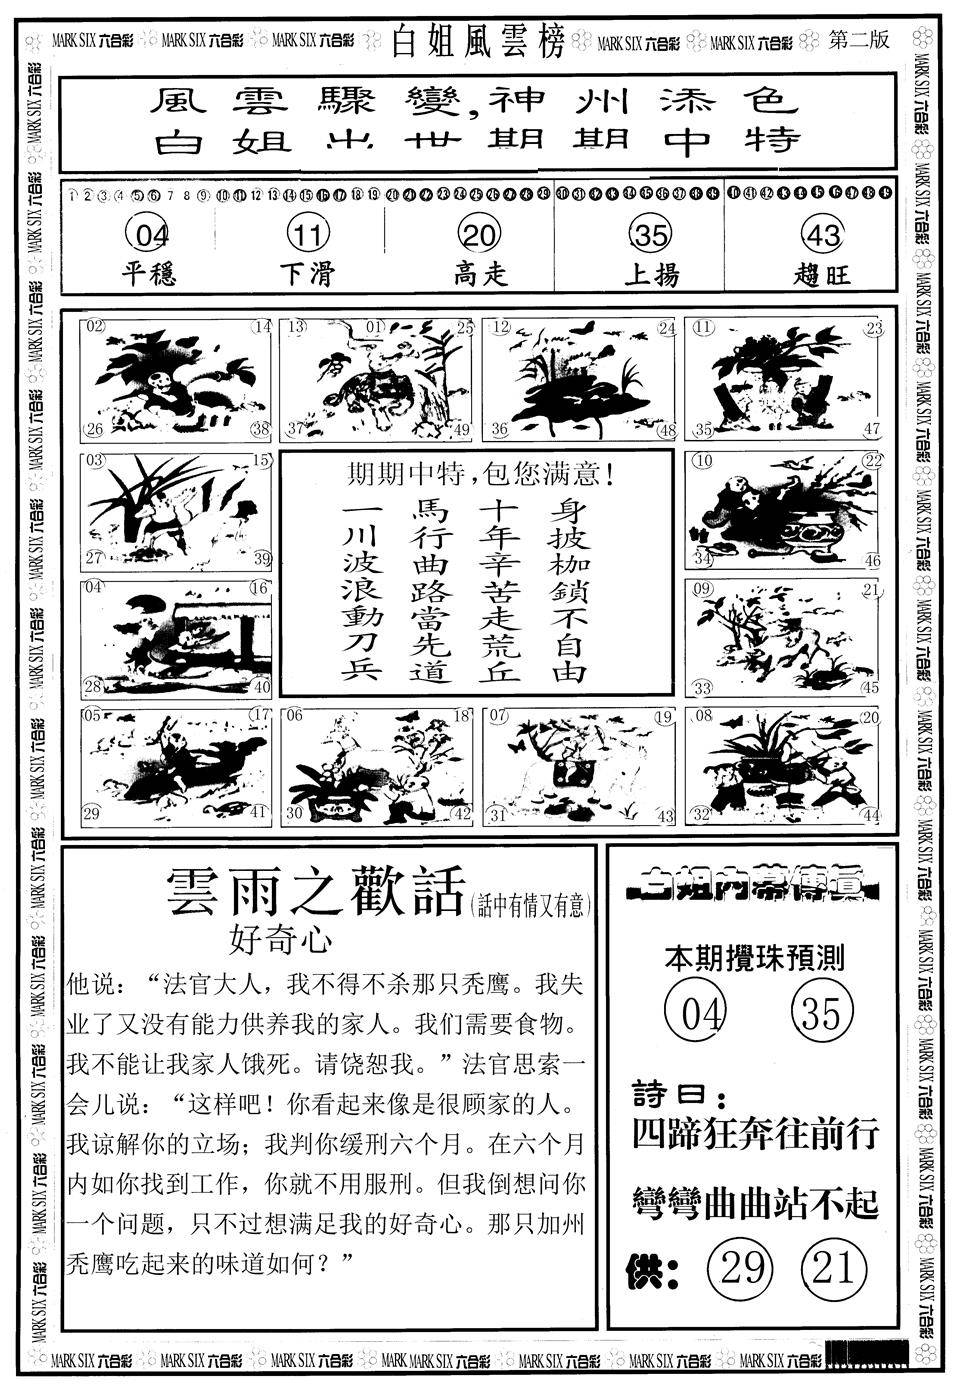 MARK SIX 六合彩 MARK SIX 六合彩 MARK SIX 六合彩 白姐風雲榜 MARK SIX 六合彩 MARK SIX 六合彩 第二版
風雲驟變,神州添色
白姐出世期期中特
1 2 3 4 5 6 7 8 9 10 11 12 13 14 15 16 17 18 19 20 21 22 23 24 25 26 27 28 29 30 31 32 33 34 35 36 37 38 39 40 41 42 43 44 45 46 47 48 49
04 11 20 35 43
平穩 下滑 高走 上揚 趨旺
02 14 13 01 25 12 24 11 23
26 38 37 49 36 48 35 47
03 15 10 22
27 39 34 46
04 16 09 21
28 40 33 45
05 17 06 18 07 19 08 20
29 41 30 42 31 43 32 44
期期中特,包您满意!
身披枷鎖不自由
十年辛苦走荒丘
馬行曲路當先道
一川波浪動刀兵
雲雨之歡話(話中有情又有意)
好奇心
他说：“法官大人，我不得不杀那只秃鹰。我失
业了又没有能力供养我的家人。我们需要食物。
我不能让我家人饿死。请饶恕我。”法官思索一
会儿说：“这样吧！你看起来像是很顾家的人。
我谅解你的立场；我判你缓刑六个月。在六个月
内如你找到工作，你就不用服刑。但我倒想问你
一个问题，只不过想满足我的好奇心。那只加州
秃鹰吃起来的味道如何？”
白姐内幕傳真
本期攪珠預測
04 35
詩曰:
四蹄狂奔往前行
彎彎曲曲站不起
供: 29 21
MARK SIX 六合彩 MARK SIX 六合彩 MARK SIX 六合彩 MARK MARK SIX 六合彩 MARK SIX 六合彩 MARK SIX 六合彩 MARK SIX 六合彩